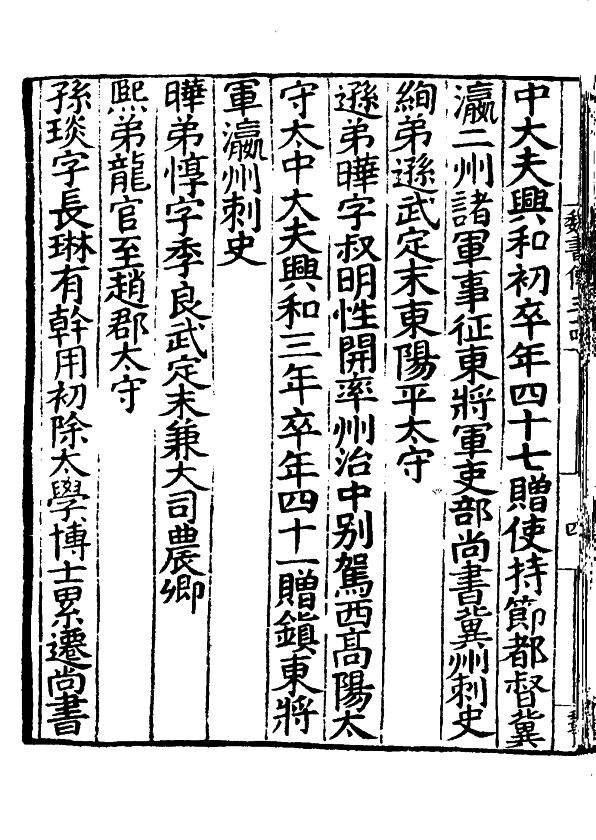 中大夫興和初卒年四十七贈使持節都督冀
瀛二州諸軍事征東將軍吏部尚書冀州刺史
絢弟遜武定末東陽平太守
遜弟曄字叔明性開率州治中別駕西高陽太
守太中大夫興和三年卒年四十一贈鎮東將
軍瀛州刺史
曄弟惇字季良武定末兼大司農卿
熙弟龍官至趙郡太守
孫琰字長琳有幹用初除太學博士累遷尚書
魏書傳三
四